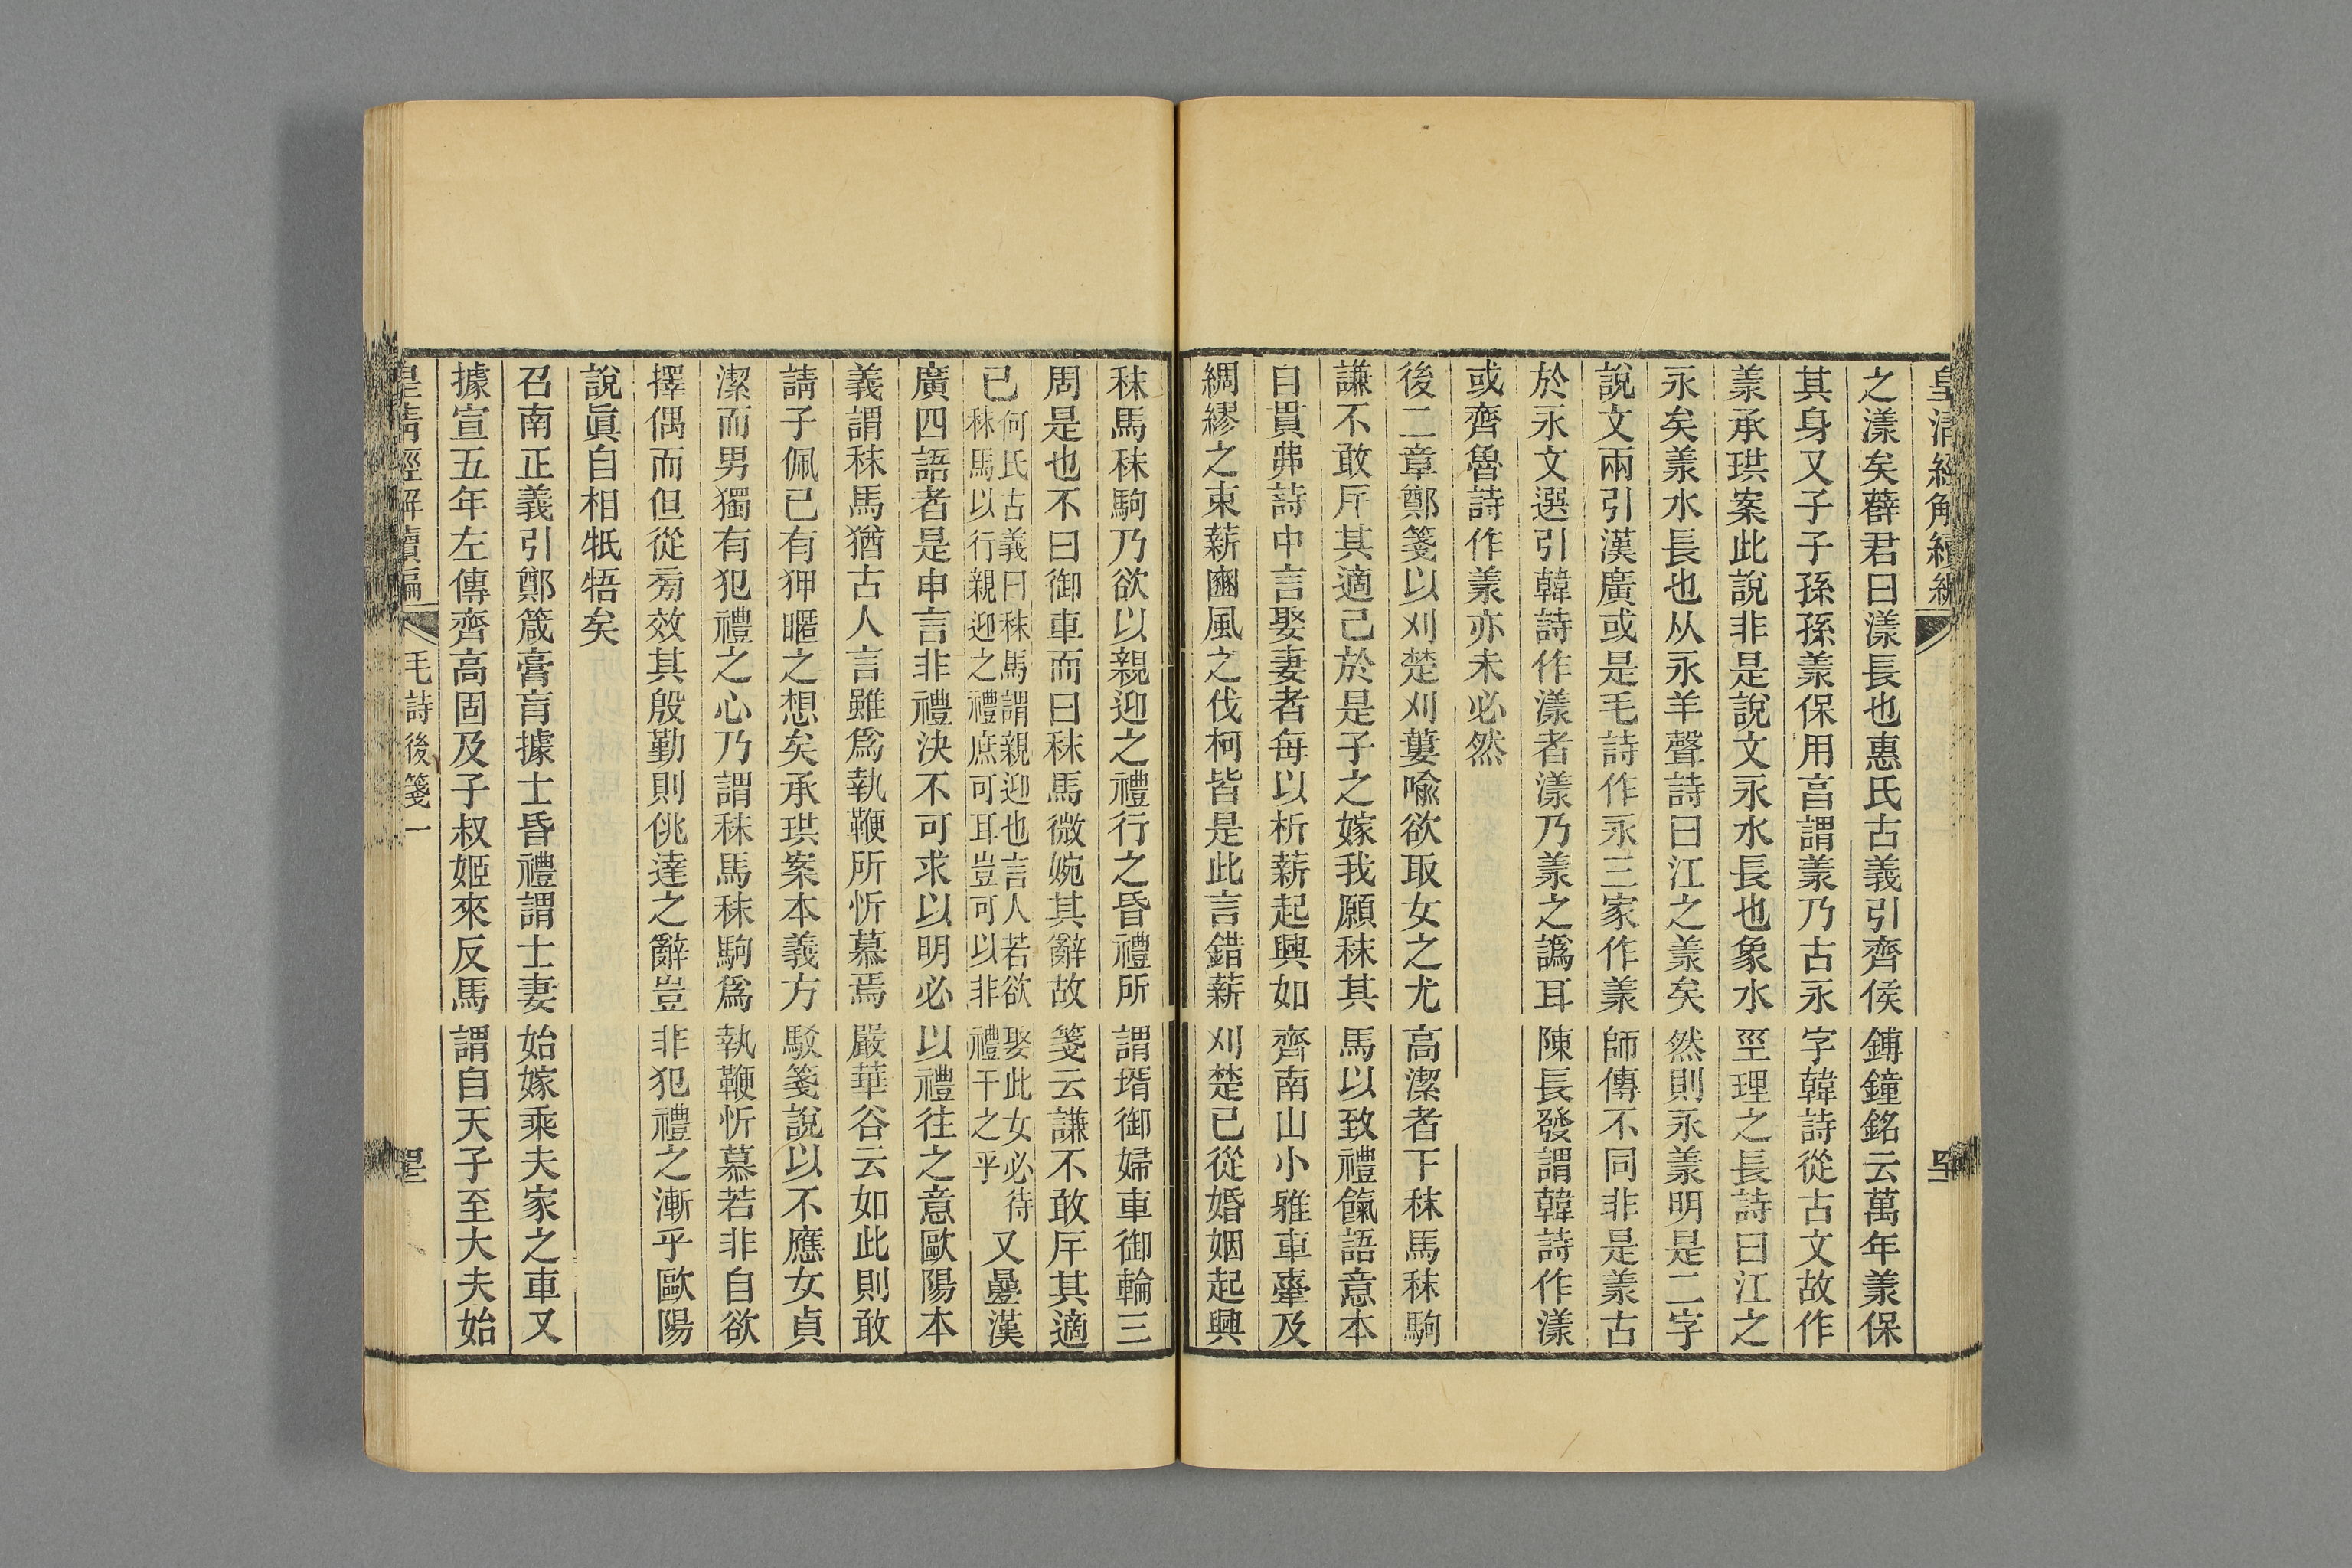 皇清經解續編
之漾矣薛君曰漾長也惠氏古義引齊侯鎛鐘銘云萬年羕保
其身又子子孫孫羕保用亯謂羕乃古永字韓詩從古文故作
羕承珙案此說非是說文永水長也象水巠理之長詩曰江之
永矣羕水長也从永羊聲詩曰江之羕矣然則永羕明是二字
說文兩引漢廣或是毛詩作永三家作羕師傳不同非是羕古
於永文選引韓詩作漾者漾乃羕之譌耳陳長發謂韓詩作漾
或齊魯詩作羕亦未必然
後二章鄭箋以刈楚刈蔞喻欲取女之尤高潔者下秣馬秣駒
謙不敢斥其適己於是子之嫁我願秣其馬以致禮餼語意本
自貫弗詩中言娶妻者每以析薪起興如齊南山小雅車舝及
綢繆之束薪豳風之伐柯皆是此言錯薪刈楚已從婚姻起興
秣馬秣駒乃欲以親迎之禮行之昏禮所謂壻御婦車御輪三
周是也不曰御車而曰秣馬微婉其辭故箋云謙不敢斥其適
已何氏古義曰秣馬謂親迎也言人若欲娶此女必待秣馬以行親迎之禮庶可耳豈可以非禮干之乎又曡漢
廣四語者是申言非禮決不可求以明必以禮往之意歐陽本
義謂秣馬猶古人言雖爲執鞭所忻慕焉嚴華谷云如此則敢
請子佩已有狎暱之想矣承珙案本義方駁箋說以不應女貞
潔而男獨有犯禮之心乃謂秣馬秣駒爲執鞭忻慕若非自欲
擇偶而但從旁效其殷勤則佻達之辭豈非犯禮之漸乎歐陽
說眞自相牴牾矣
召南正義引鄭箴膏肓據士昏禮謂士妻始嫁乘夫家之車又
據宣五年左傳齊高固及子叔姬來反馬謂自天子至大夫始
皇清經解續編 毛詩後箋一